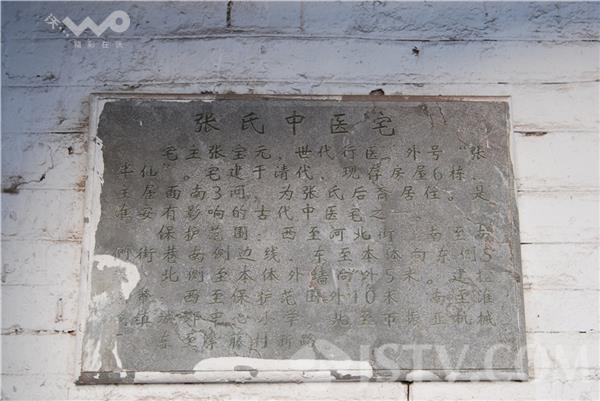 沃 WO
精彩在沃
张氏中医宅
宅主张宝元，世代行医，外号“张
半仙”。宅建于清代，现存房屋6栋，
主屋面南3间，为张氏后裔居住。是
淮安有影响的古代中医宅之一。
保护范围：西至河北街，南至
侧街巷南侧边线，东至本体向东侧5
北侧至本体外墙向外5米。建
西至保护范围外10米，南至淮
镇 中心小学，北至市振亚机械
东 村新
JSTV.COM